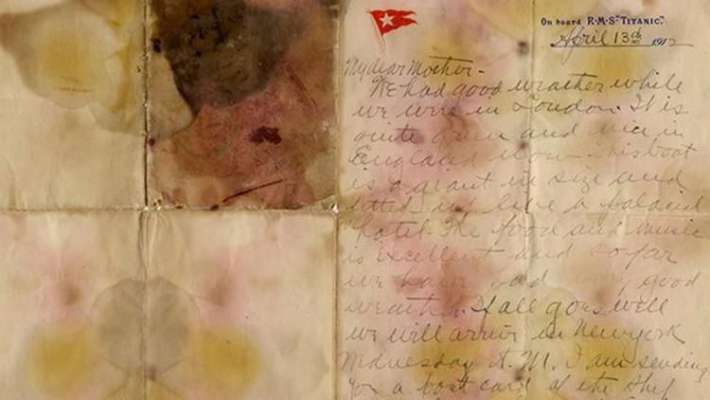 On board R.M.S. "TITANIC".
April 13th 1912
My dear Mother-
We had good weather while
we were in London. It is
quite green and nice in
England now. This boat
is a giant in size and
fitted up like a palacial
hotel. The food and music
is excellent and so far
we have had good
weather. If all goes well
we will arrive in New york
Wednesday A.M. I am sending
you a post card of the ship